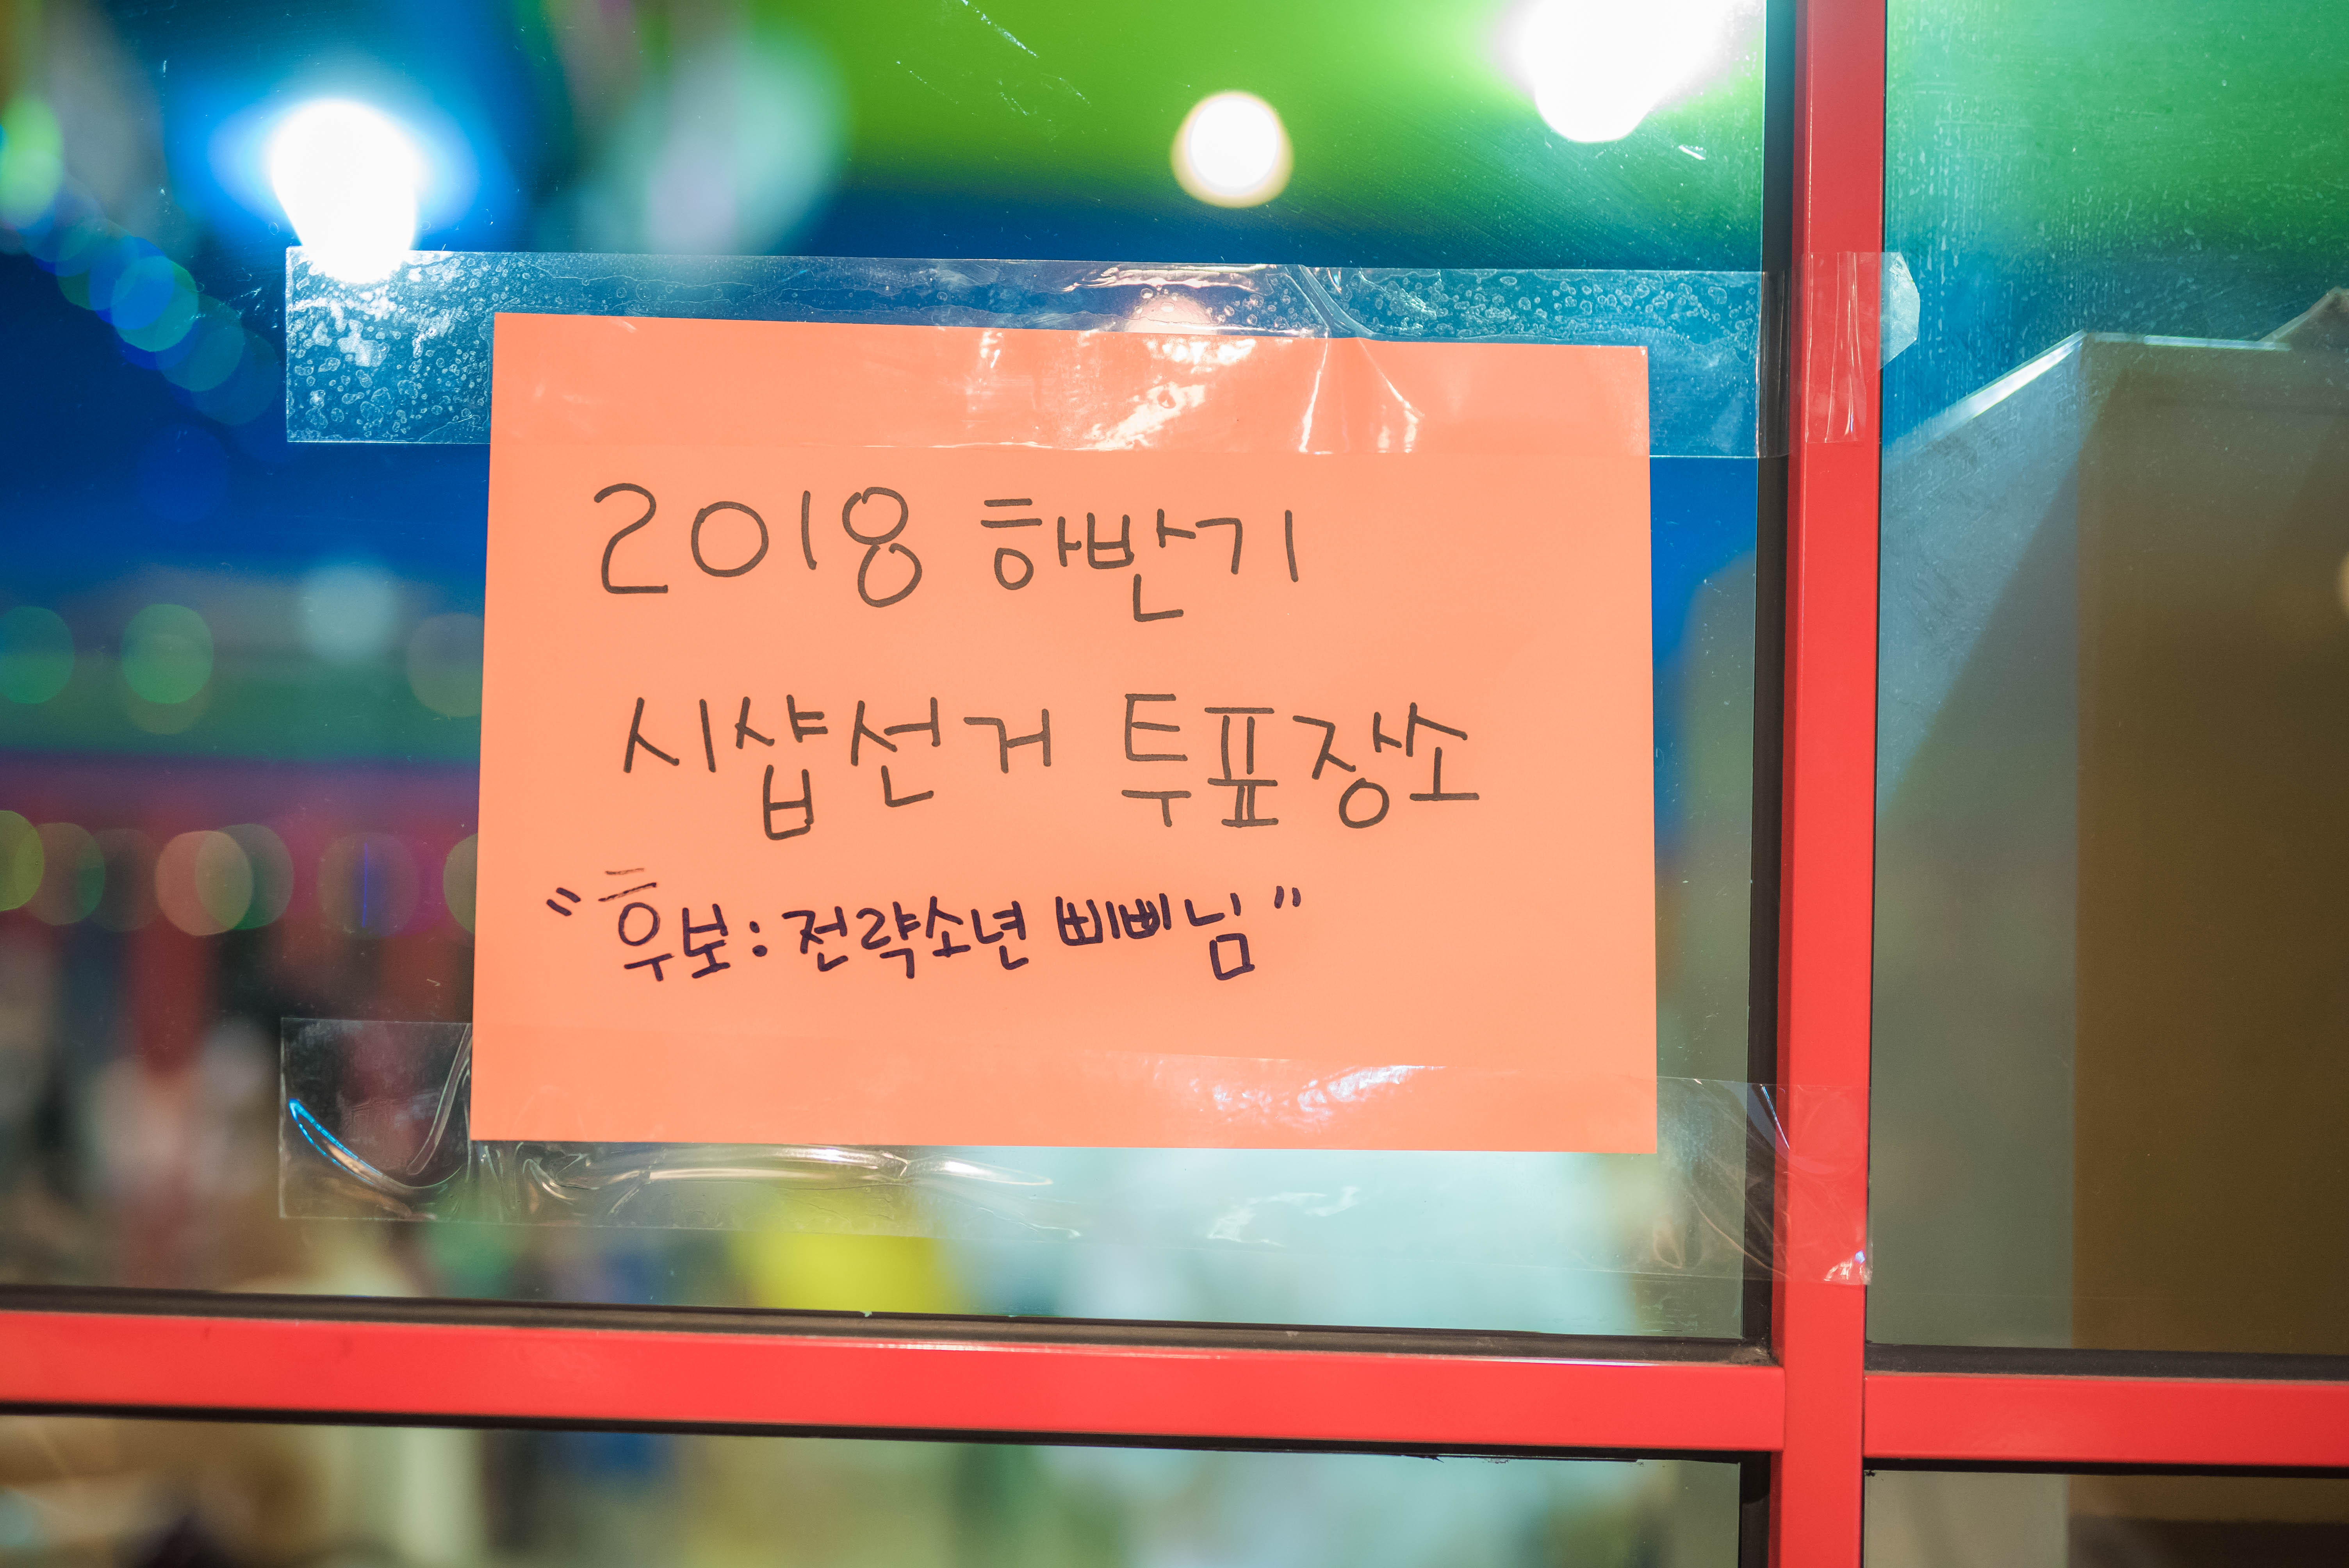 2018 하반기
시샵선거 투표장소
"후보: 전략소년 삐삐님"